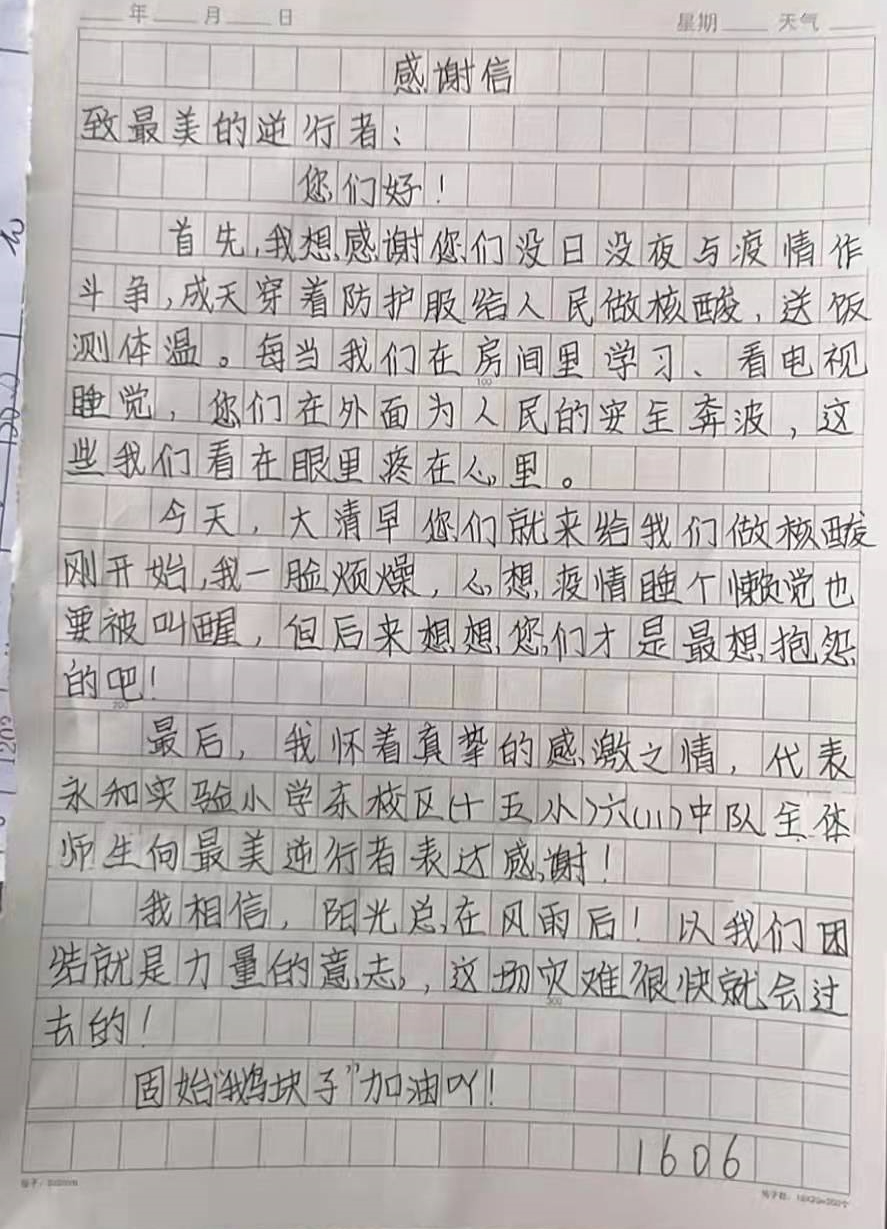 年 月 日 星期 天气
感谢信
致最美的逆行者：
您们好！
首先,我想感谢您们没日没夜与疫情作
斗争,成天穿着防护服给人民做核酸,送饭
测体温。每当我们在房间里学习、看电视
睡觉,您们在外面为人民的安全奔波,这
些我们看在眼里疼在心里。
今天,大清早您们就来给我们做核酸
刚开始,我一脸烦燥,心想疫情睡个懒觉也
要被叫醒,但后来想想您们才是最想抱怨
的吧！
最后,我怀着真挚的感激之情,代表
永和实验小学东校区(十五小)六(11)中队全体
师生向最美逆行者表达感谢！
我相信,阳光总在风雨后！以我们团
结就是力量的意志,这场灾难很快就会过
去的！
固始“鹅块子”加油吖！
1606